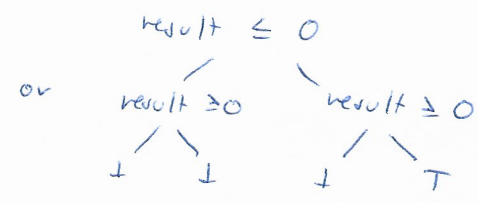 result ≤ 0
or result ≥ 0 result ≥ 0
⊥ ⊥ ⊥ ⊤